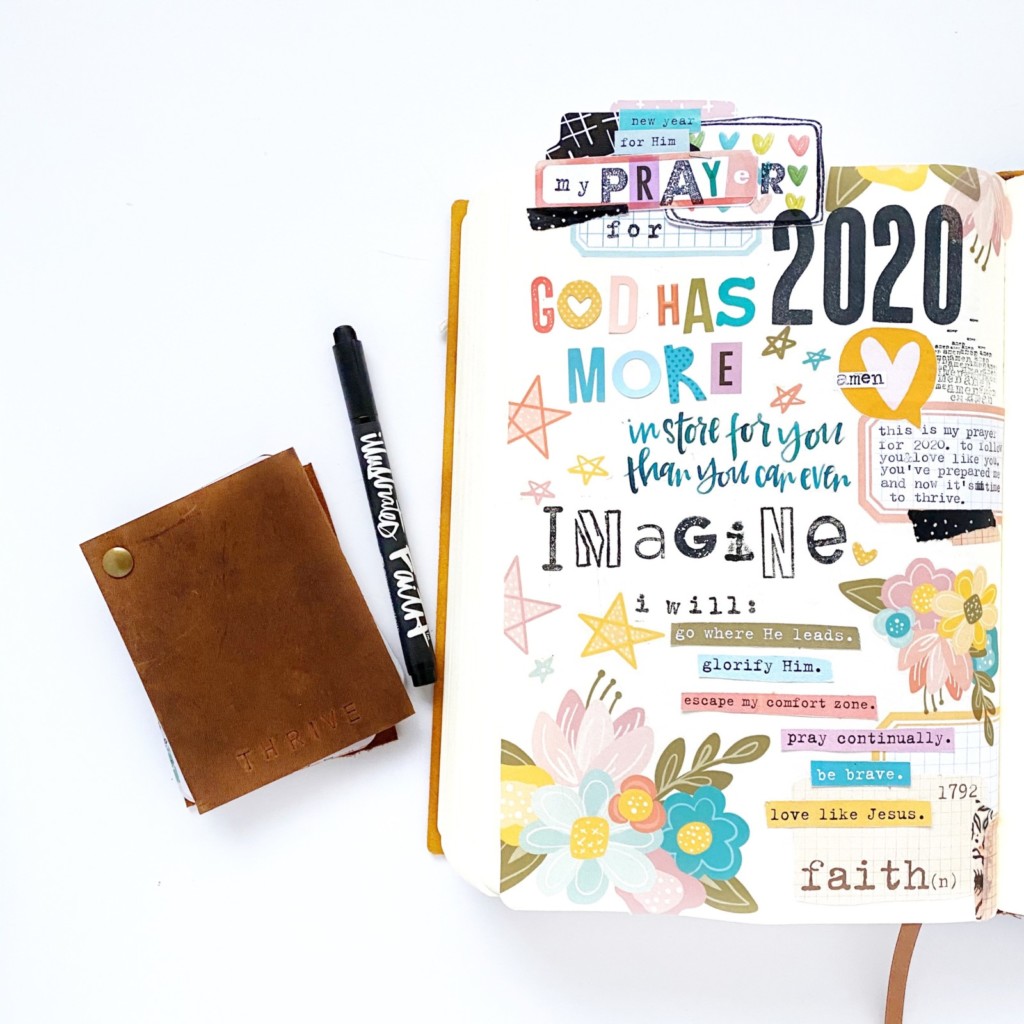 new year
for Him
my PRAYeR
for
2020
GOD HAS
MORE
in store for you
than you can even
IMaGiNe
amen
this is my prayer
for 2020. to follow
you & love like you.
you've prepared me
and now it's time
to thrive.
i will:
go where He leads.
glorify Him.
escape my comfort zone.
pray continually.
be brave.
love like Jesus.
1792
faith(n)
illustrated Faith
THRIVE